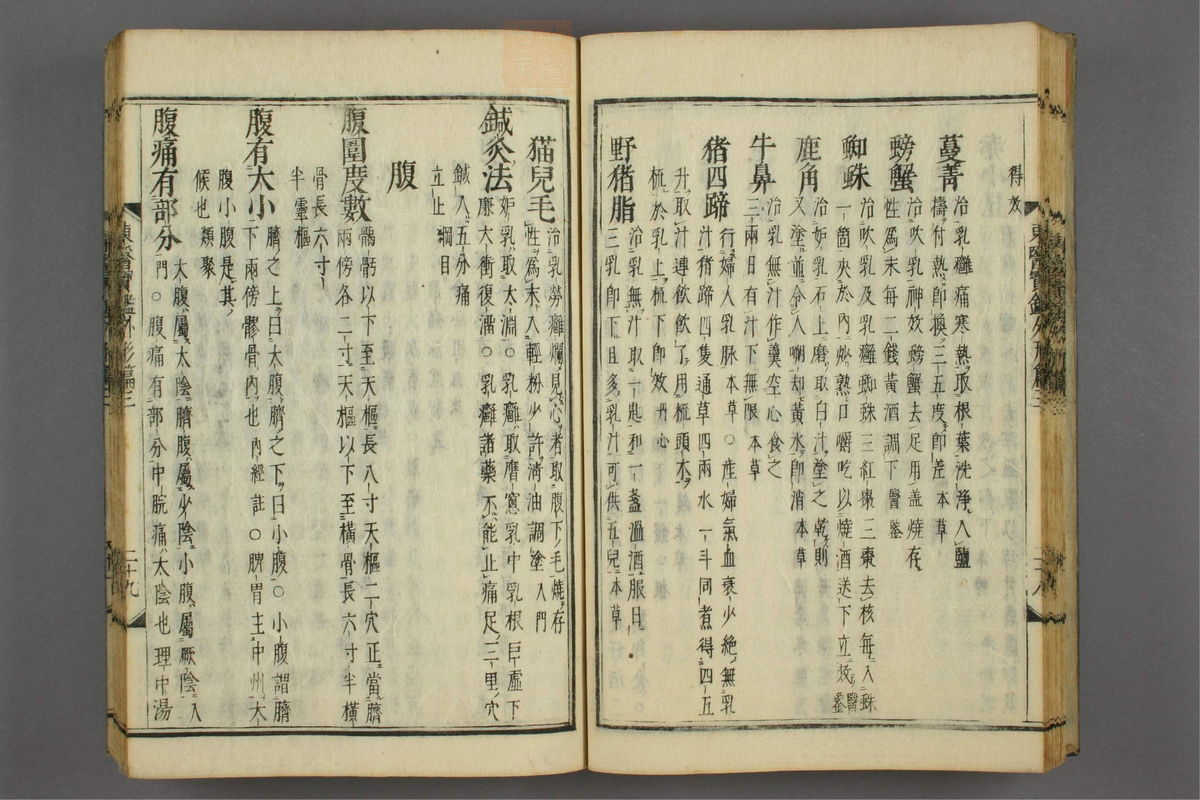 得效
蔓菁
治乳癰痛寒熱取根葉洗淨入鹽
擣付熱卽換三五度卽差本草
螃蟹
治吹乳神效螃蟹去足用盖燒存
性爲末每二錢黃酒調下醫鑒
蜘蛛
治吹乳及乳癰蜘蛛三紅棗三棗去核每入蛛
一箇夾於內炒熟口嚼吃以燒酒送下立效醫鑒
鹿角
治妬乳石上磨取白汁塗之乾則
又塗並令人嗍却黃水卽消本草
牛鼻
治乳無汁作羹空心食之
三兩日有汁下無限本草
猪四蹄
行婦人乳脉本草○産婦氣血衰少絶無乳
汁猪蹄四隻通草四兩水一斗同煮得四五
升取汁連飮飮了用梳頭木
梳於乳上梳下卽效丹心
野猪脂
治乳無汁取一匙和一盞溫酒服日
三乳卽下且多乳汁可供五兒本草
東醫寶鑑外形篇三
二十八
猫兒毛
治乳勞癰爛見心者取腹下毛燒存
性爲末入輕粉少許淸油調塗入門
鍼灸法
妬乳取太淵○乳癰取膺窓乳中乳根巨虛下
廉大衝復溜○乳癰諸藥不能止痛足三里穴
鍼入五分痛
立止綱目
腹
腹圍度數
𩩲骬以下至天樞長八寸天樞二穴正當臍
兩傍各二寸天樞以下至橫骨長六寸半橫
骨長六寸
半靈樞
腹有大小
臍之上曰大腹臍之下曰小腹○小腹謂臍
下兩傍髎骨內也內經註○脾胃主中州大
腹小腹是其
候也類聚
腹痛有部分
大腹屬太陰臍腹屬少陰小腹屬厥陰入
門○腹痛有部分中脘痛太陰也理中湯
東醫寶鑑外形篇三
二十九